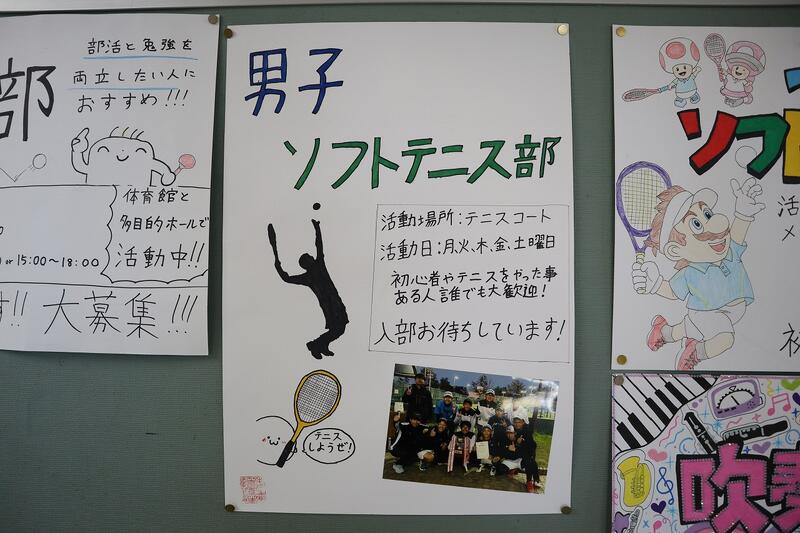 部
部活と勉強を
両立したい人に
おすすめ!!!
体育館と
多目的ホールで
活動中!!
or 15:00~18:00
!! 大募集!!!
男子
ソフトテニス部
活動場所:テニスコート
活動日:月、火、木、金、土曜日
初心者やテニスをやった事
ある人誰でも大歓迎!
入部お待ちしています!
テニス
しようぜ!
ソフ
活
メ
初
吹奏